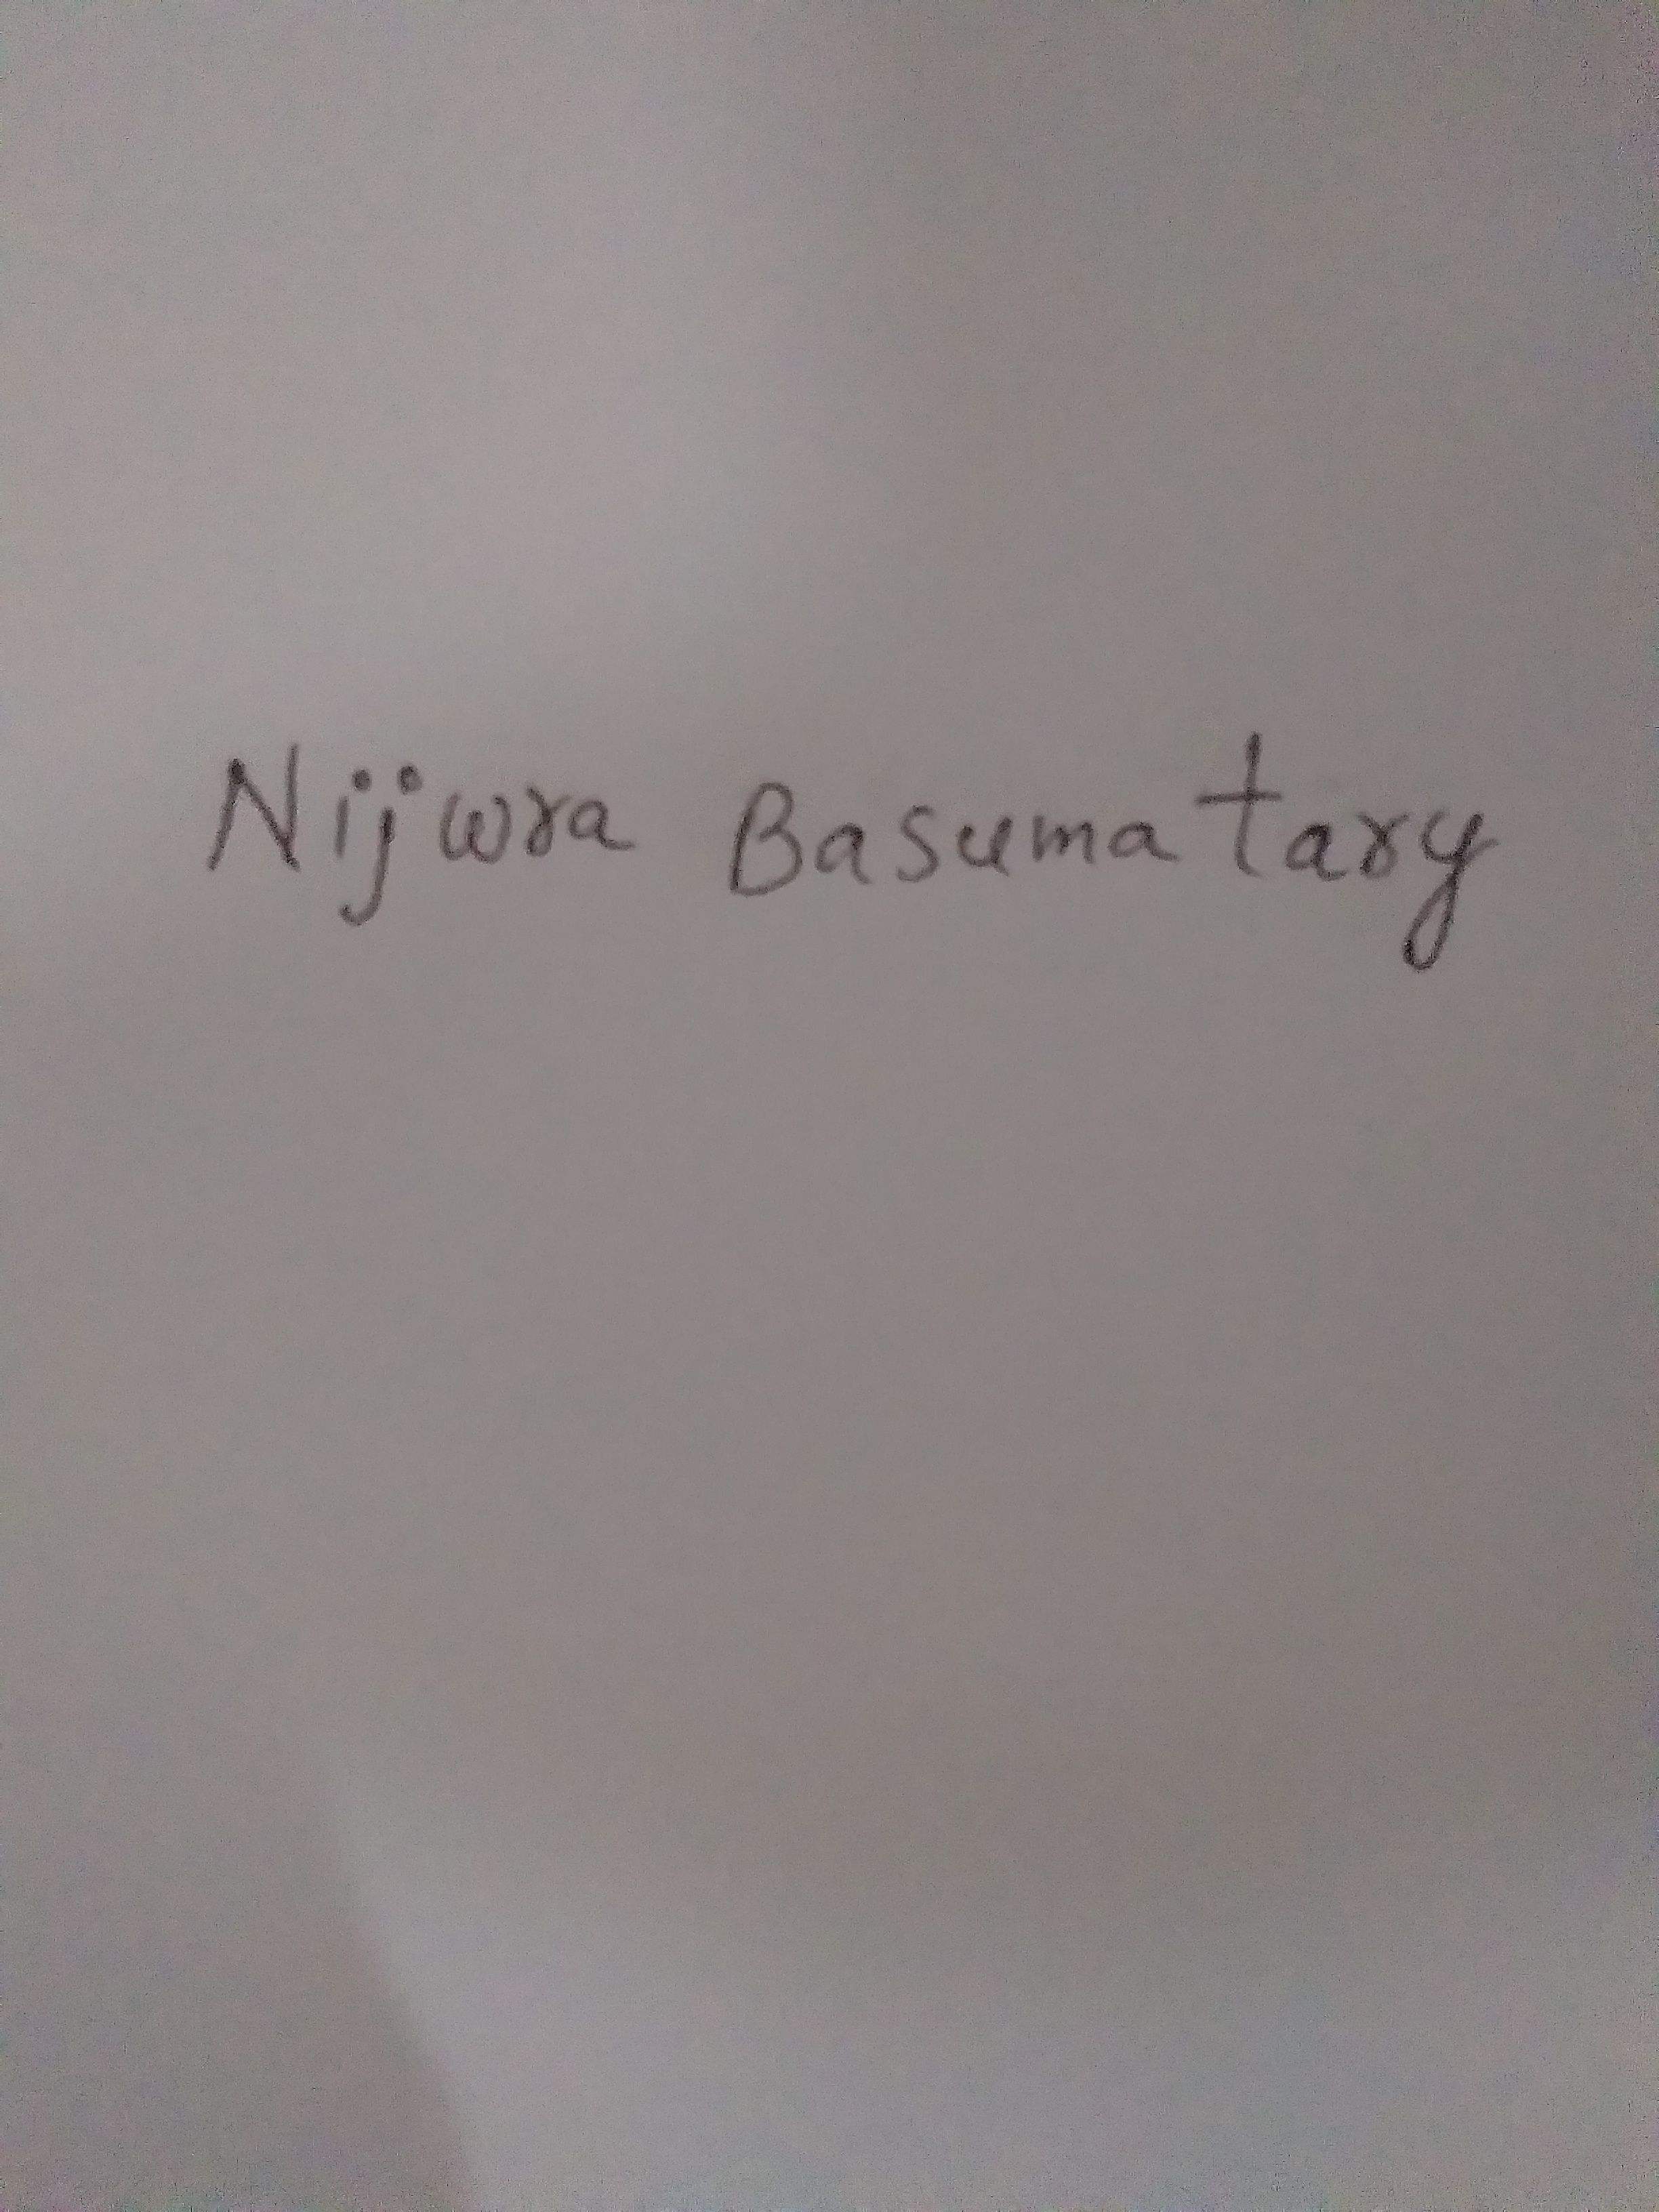 Nijwra Basumatary